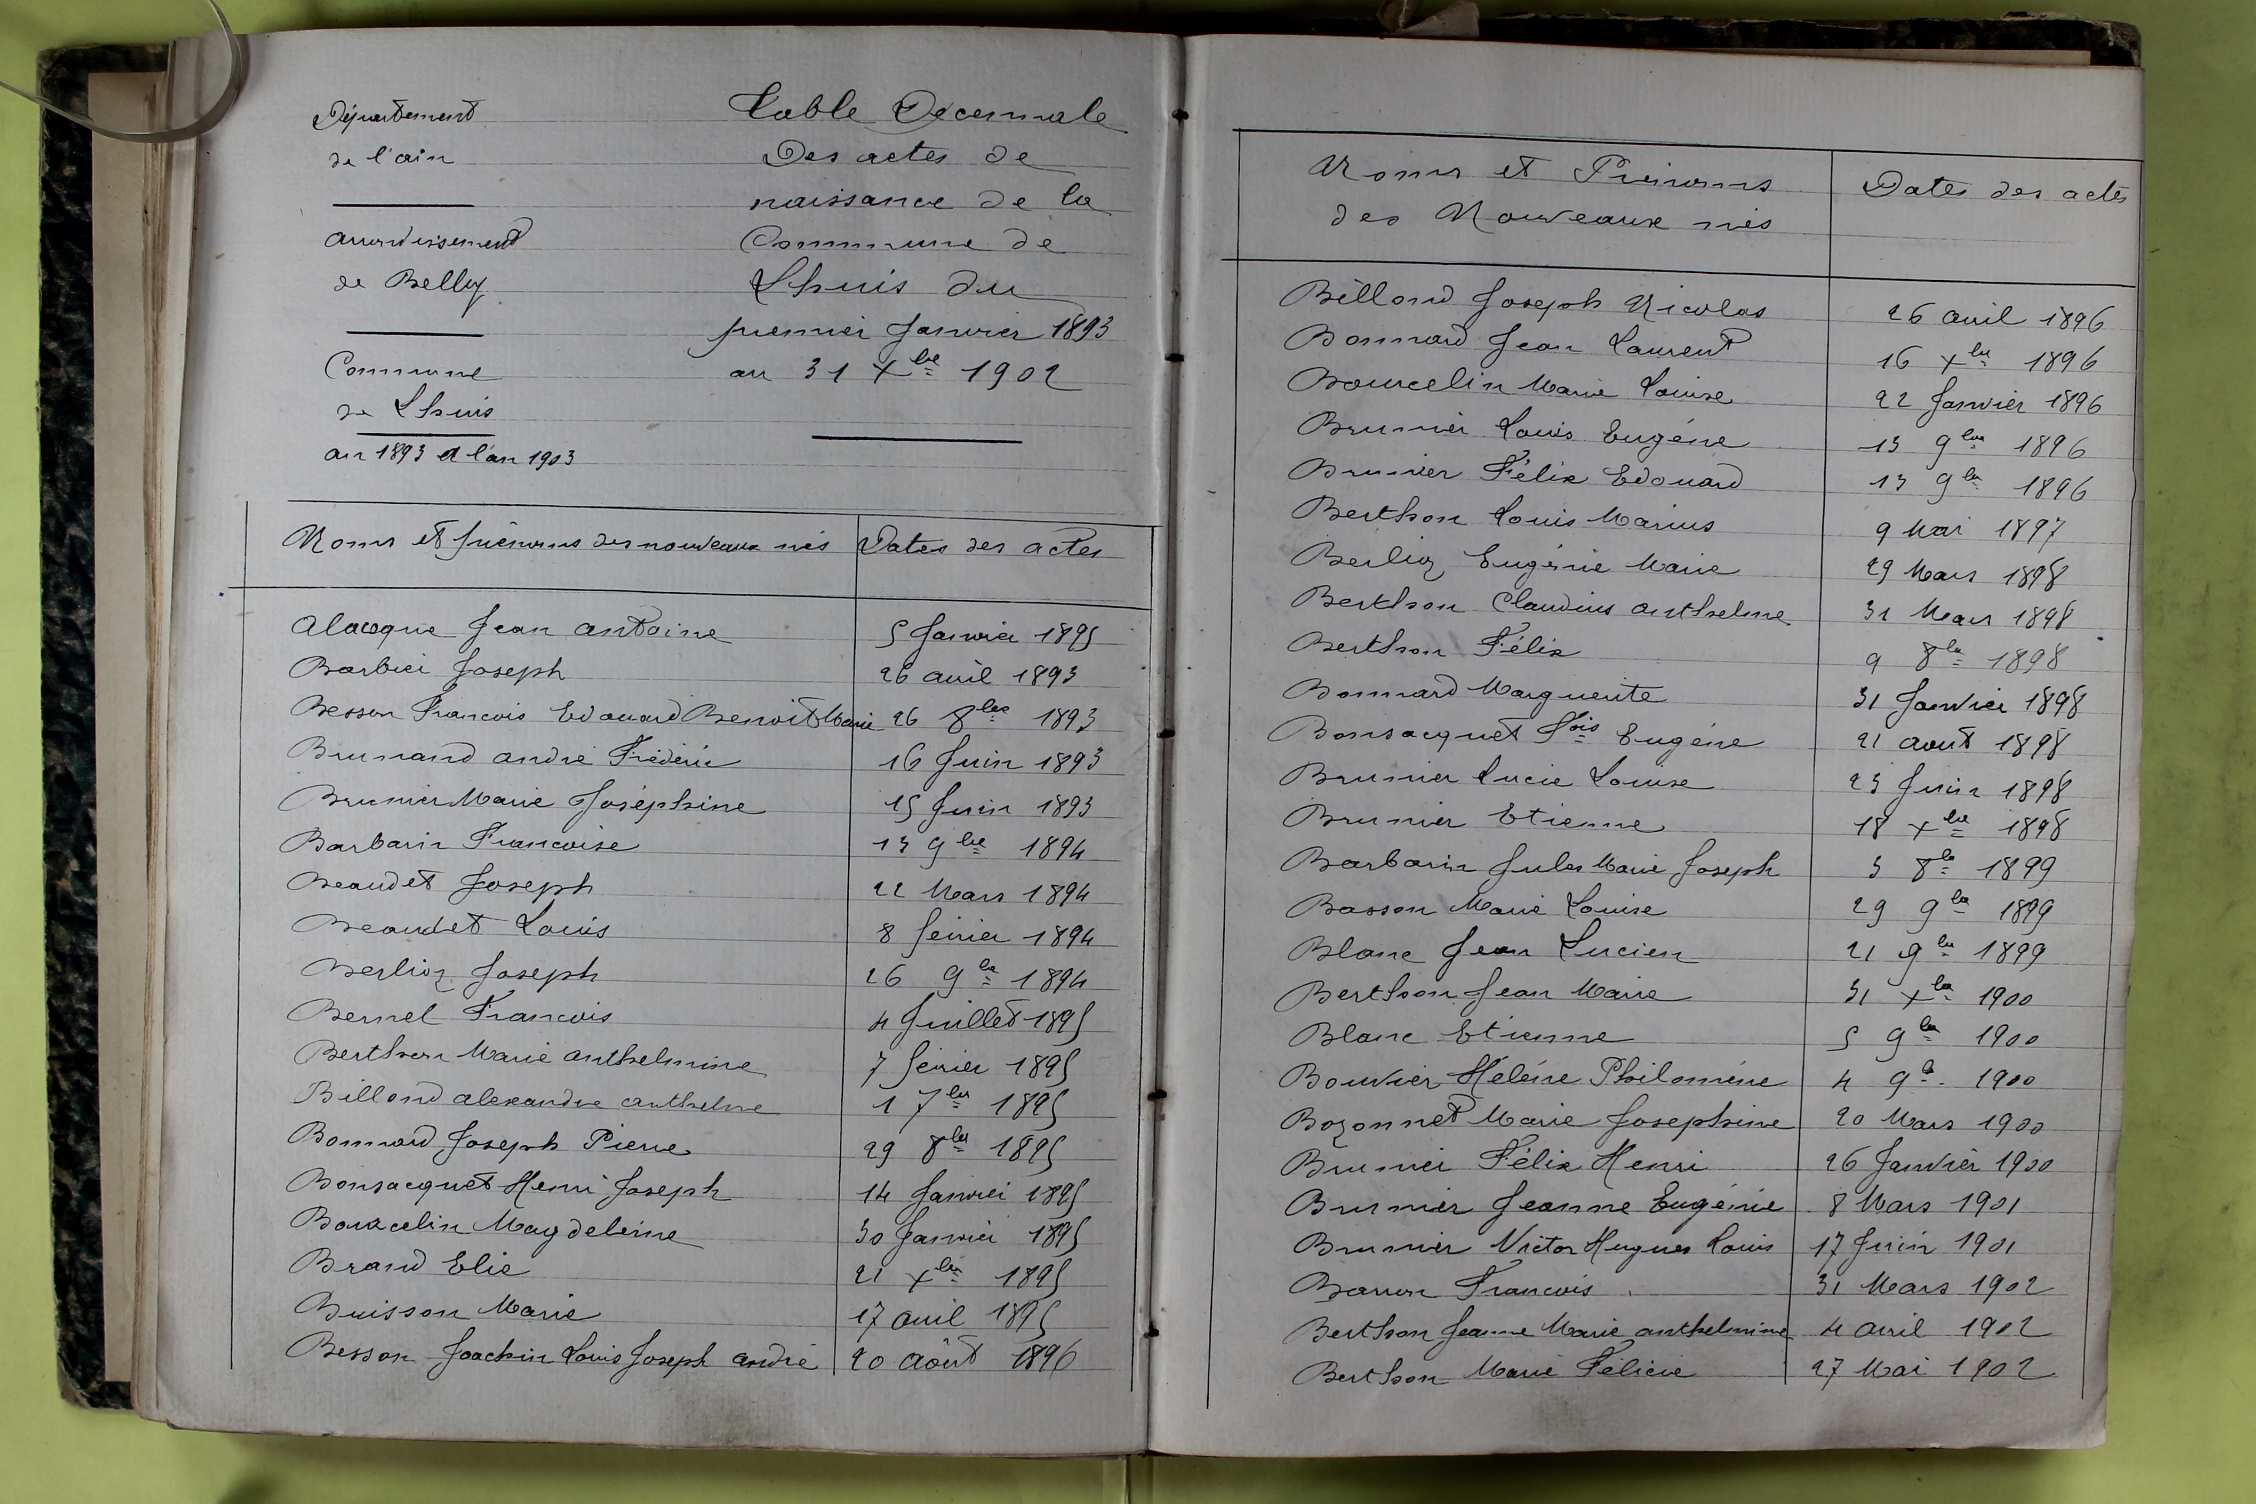 Département
de l'ain
arrondissement
de Belley
Commune
de Lhuis
an 1893 à l'an 1903
Table Decennale
Des actes de
naissance de la
Commune de
Lhuis du
premier Janvier 1893
au 31 Xbre 1902
Noms et prénoms des nouveaux nés Dates des actes
Alacoque Jean antoine 5 Janvier 1895
Barbier Joseph 26 avril 1893
Besson Francois Edouard Benoit Marie 26 8bre 1893
Brunand andré Frédéric 16 Juin 1893
Brunier Marie Joséphine 15 Juin 1893
Barbarin Francoise 13 9bre 1894
Beaudet Joseph 22 Mars 1894
Beaudet Louis 8 février 1894
Berlioz Joseph 26 9bre 1894
Bernel Francois 4 Juillet 1895
Berthon Marie anthelmine 7 février 1895
Billond alexandre anthelme 1 7bre 1895
Bonnard Joseph Pierre 29 8bre 1895
Bonsacquet Henri Joseph 14 Janvier 1895
Bourcelin Magdeleine 30 Janvier 1895
Brand Elie 21 Xbre 1895
Buisson Marie 17 avril 1895
Besson Joachin Louis Joseph andré 20 Août 1896
Noms et Prénoms
des Nouveaux nés Dates des actes
Billond Joseph Nicolas 26 avril 1896
Bonnard Jean Laurent 16 Xbre 1896
Bourcelin Marie Louise 22 Janvier 1896
Brunier Louis Eugène 13 9bre 1896
Brunier Félix Edouard 13 9bre 1896
Berthon Louis Marius 9 Mai 1897
Berlioz Eugénie Marie 29 Mars 1898
Berthon Claudius anthelme 31 Mars 1898
Berthon Félix 9 8bre 1898
Bonnard Marguerite 31 Janvier 1898
Bonsacquet Fois Eugène 21 aout 1898
Brunier Lucie Louise 23 Juin 1898
Brunier Etienne 18 Xbre 1898
Barbarin Jules Marie Joseph 3 8bre 1899
Basson Marie Louise 29 9bre 1899
Blanc Jean Lucien 21 9bre 1899
Berthon Jean Marie 31 Xbre 1900
Blanc Etienne 5 9bre 1900
Bouvier Hélène Philomène 4 9b 1900
Bozonnet Marie Josephine 20 Mars 1900
Brunier Félix Henri 26 Janvier 1900
Brunier Jeanne Eugénie 8 Mars 1901
Brunier Victor Hugues Louis 17 Juin 1901
Barron Francois 31 Mars 1902
Berthon Jeanne Marie anthelmine 4 avril 1902
Berthon Marie Félicie 27 Mai 1902